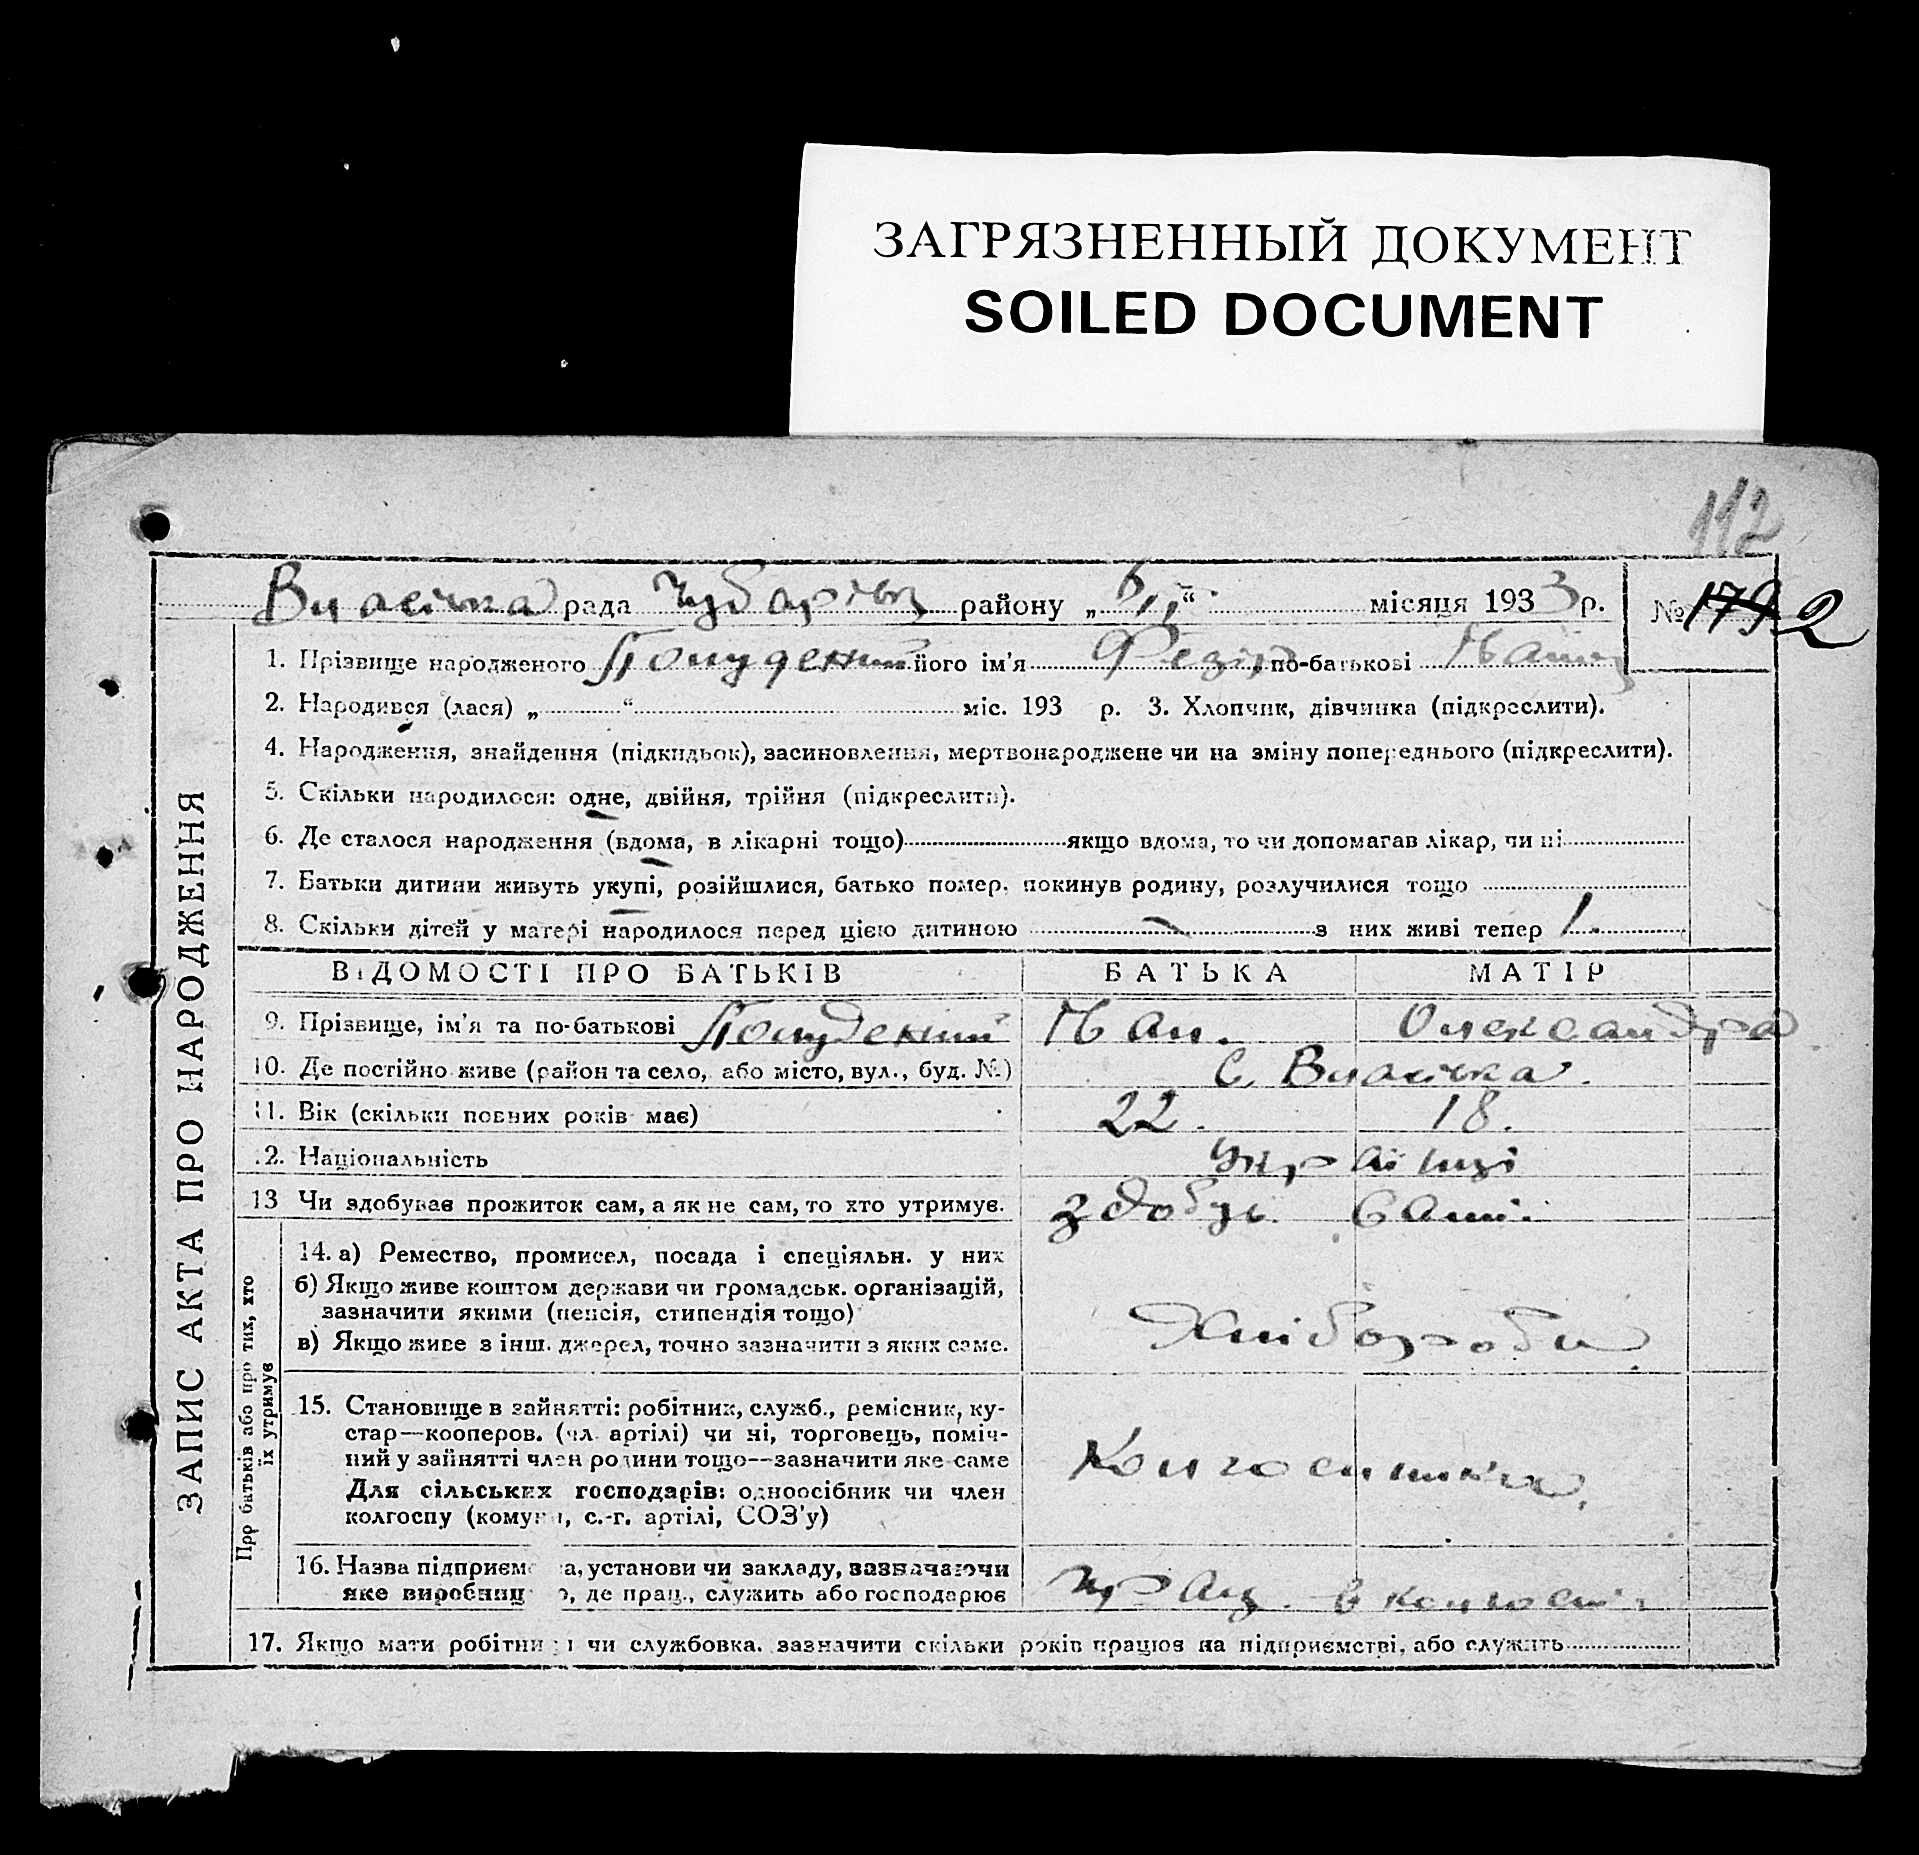 ЗАГРЯЗНЕННЫЙ ДОКУМЕНТ
SOILED DOCUMENT
112
рада районy „ “ місяця 1933 р. № 179 2
1. Прізвище народженого його ім'я по-батькові
2. Народився (лася) „ “ міс. 193 р. 3. Хлопчик, дівчинка (підкреслити).
4. Народження, знайдення (підкидьок), засиновлення, мертвонароджене чи на зміну попереднього (підкреслити).
5. Скільки народилося: одне, двійня, трійня (підкреслити).
6. Де сталося народження (вдома, в лікарні тощо) якщо вдома, то чи допомагав лікар, чи ні
7. Батьки дитини живуть укупі, розійшлися, батько помер, покинув родину, розлучилися тощо
8. Скільки дітей у матері народилося перед цією дитиною – з них живі тепер 1.
ЗАПИС АКТА ПРО НАРОДЖЕННЯ
ВІДОМОСТІ ПРО БАТЬКІВ БАТЬКА МАТІР
9. Прізвище, ім'я та по-батькові Олександра
10. Де постійно живе (район та село, або місто, вул., буд. №) с. Власівка.
11. Вік (скільки повних років має) 22. 18.
12. Національність Українці
13 Чи здобував прожиток сам, а як не сам, то хто утримує. здобув. самі.
Прр батьків або про тих, хто їх утримує
14. а) Ремество, промисел, посада і спеціяльн. у них
б) Якщо живе коштом держави чи громадськ. організацій,
зазначити якими (пенсія, стипендія тощо)
в) Якщо живе з інш. джерел, точно зазначити з яких саме.
Хлібороби.
15. Становище в зайнятті: робітник, служб., ремісник, ку-
стар—кооперов. (чл. артілі) чи ні, торговець, поміч-
ний у зайнятті член родини тощо—зазначити яке саме
Для сільських господарів: одноосібник чи член
колгоспу (комуни, с.-г. артілі, СОЗ'у)
16. Назва підприємства, установи чи закладу, зазначаючи
яке виробництво, де прац., служить або господарює
прац. в колгоспі
17. Якщо мати робітниця чи службовка, зазначити скільки років працює на підприємстві, або служить